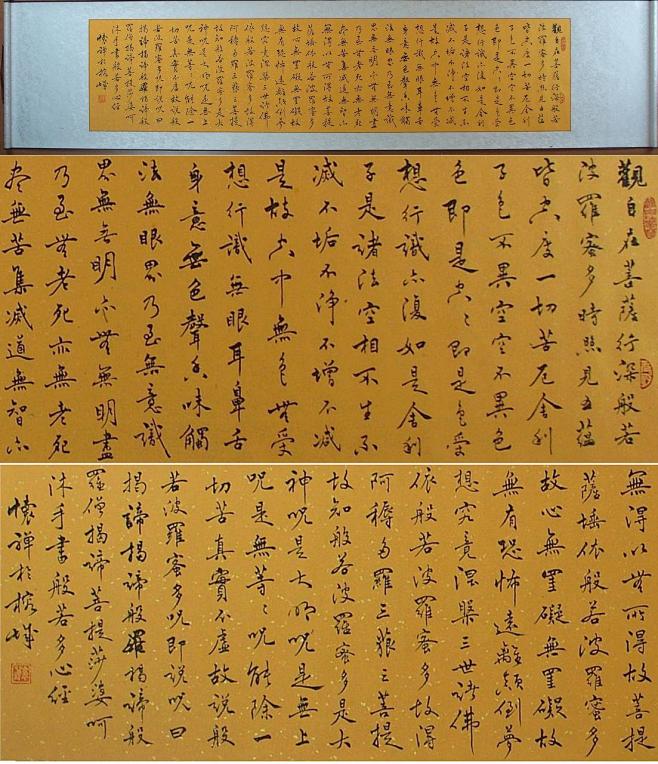 觀自在菩薩行深般若
波羅蜜多時照見五蘊
皆空度一切苦厄舍利
子色不異空空不異色
色即是空〻即是色受
想行識亦復如是舍利
子是諸法空相不生不
滅不垢不淨不增不減
是故空中無色無受
想行識無眼耳鼻舌
身意無色聲香味觸
法無眼界乃至無意識
界無無明亦無無明盡
乃至無老死亦無老死
盡無苦集滅道無智亦
無得以無所得故菩提
薩埵依般若波羅蜜多
故心無罣礙無罣礙故
無有恐怖遠離顛倒夢
想究竟涅槃三世諸佛
依般若波羅蜜多故得
阿耨多羅三藐三菩提
故知般若波羅蜜多是大
神咒是大明咒是無上
咒是無等〻咒能除一
切苦真實不虛故說般
若波羅蜜多咒即說咒曰
揭諦揭諦般羅揭諦般
羅僧揭諦菩提莎婆呵
沐手書般若多心經
懷禪於榕城